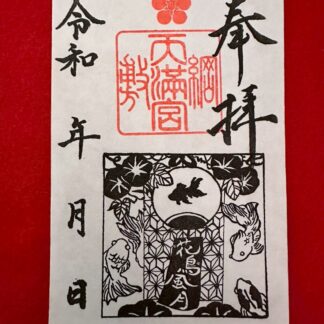 奉拝
綱敷天満宮
花鳥風月
令和 年 月 日